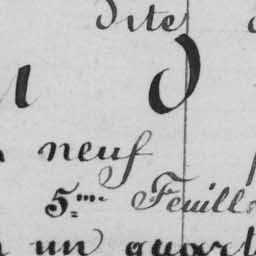 dite
d
neuf
5me Feuill
un quart